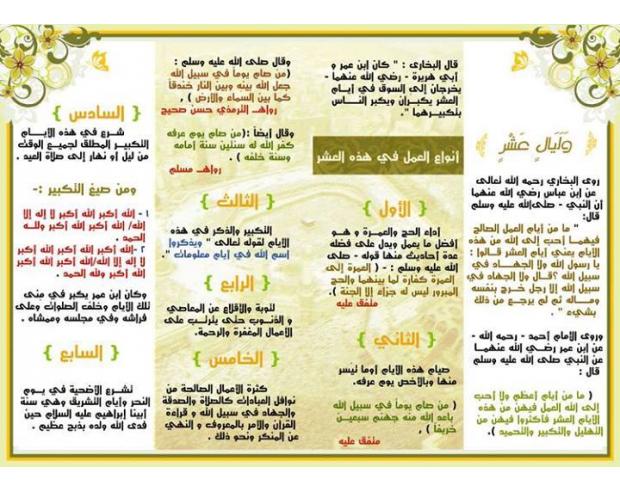 وَلَيَالٍ عَشْرٍ
روى البخاري رحمه الله تعالى
عن إبن عباس رضي الله عنهما
أن النبي - صلى الله عليه وسلم
قال:
" ما من أيام العمل الصالح
فيهما أحب إلى الله من هذه
الأيام يعني أيام العشر قالوا :
يا رسول الله ولا الجهاد في
سبيل الله ؟قال ولا الجهاد في
سبيل الله إلا رجل خرج بنفسه
وماله ثم لم يرجع من ذلك
بشيء "
وروى الأمام أحمد - رحمه الله -
عن إبن عمر رضي الله عنهما
عن النبي صلى الله عليه وسلم
قال:
( ما من أيام أعظم ولا أحب
إلى الله العمل فيهن من هذه
الأيام العشر فأكثروا فيهن من
التهليل والتكبير والتحميد ).
قال البخاري : " كان إبن عمر و
أبي هريرة - رضي الله عنهما -
يخرجان إلى السوق في أيام
العشر يكبران ويكبر الناس
بتكبيرهما ".
أنواع العمل في هذه العشر
{ الأول }
أداء الحج والعمرة و هو
أفضل ما يعمل ويدل على فضله
عدة أحاديث منها قوله - صلى
الله عليه وسلم : - ( العمرة إلى
العمرة كفارة لما بينهما والحج
المبرور ليس له جزاء إلا الجنة ).
متفق عليه
{ الثاني }
صيام هذه الأيام أوما تيسر
منها وبالأخص يوم عرفه.
( من صام يوماً في سبيل الله
باعد الله منه جهنم سبعين
خريفاً ) , متفق عليه
وقال صلى الله عليه وسلم :
(من صام يوماً في سبيل الله
جعل الله بينه وبين النار خندقاً
كما بين السماء والأرض ) ,
رواه الترمذي حسن صحيح
وقال أيضاً :(من صام يوم عرفه
كفر الله له سنتين سنة أمامه
وسنة خلفه ) .
رواه مسلم
{ الثالث }
التكبير والذكر في هذه
الأيام لقوله تعالى " ويذكروا
اسم الله في أيام معلومات ".
{ الرابع }
لتوبة والأقلاع عن المعاصي
و الذنوب حتى يترتب على
الأعمال المغفرة والرحمة.
{ الخامس }
كثرة الأعمال الصالحة من
نوافل العبادات كالصلاة والصدقة
والجهاد في سبيل الله و قراءة
القرآن والأمر بالمعروف و النهي
عن المنكر ونحو ذلك .
{ السادس }
شرع في هذه الأيام
التكبير المطلق لجميع الوقت
من ليل أو نهار إلى صلاة العيد .
ومن صيغ التكبير :-
١ - الله أكبر الله أكبر لا إله إلا
الله/ الله أكبر الله أكبر ولله
الحمد .
٢- الله أكبر الله أكبر الله أكبر
لا إله إلا الله/الله أكبر الله أكبر
الله أكبر ولله الحمد .
وكان إبن عمر يكبر في منى
تلك الأيام وخلف الصلوات وعلى
فراشه وفي مجلسه وممشاه .
{ السابع }
تشرع الأضحية في يوم
النحر وأيام التشريق وهي سنة
أبينا إبراهيم عليه السلام حين
فدى الله ولده بذبح عظيم .